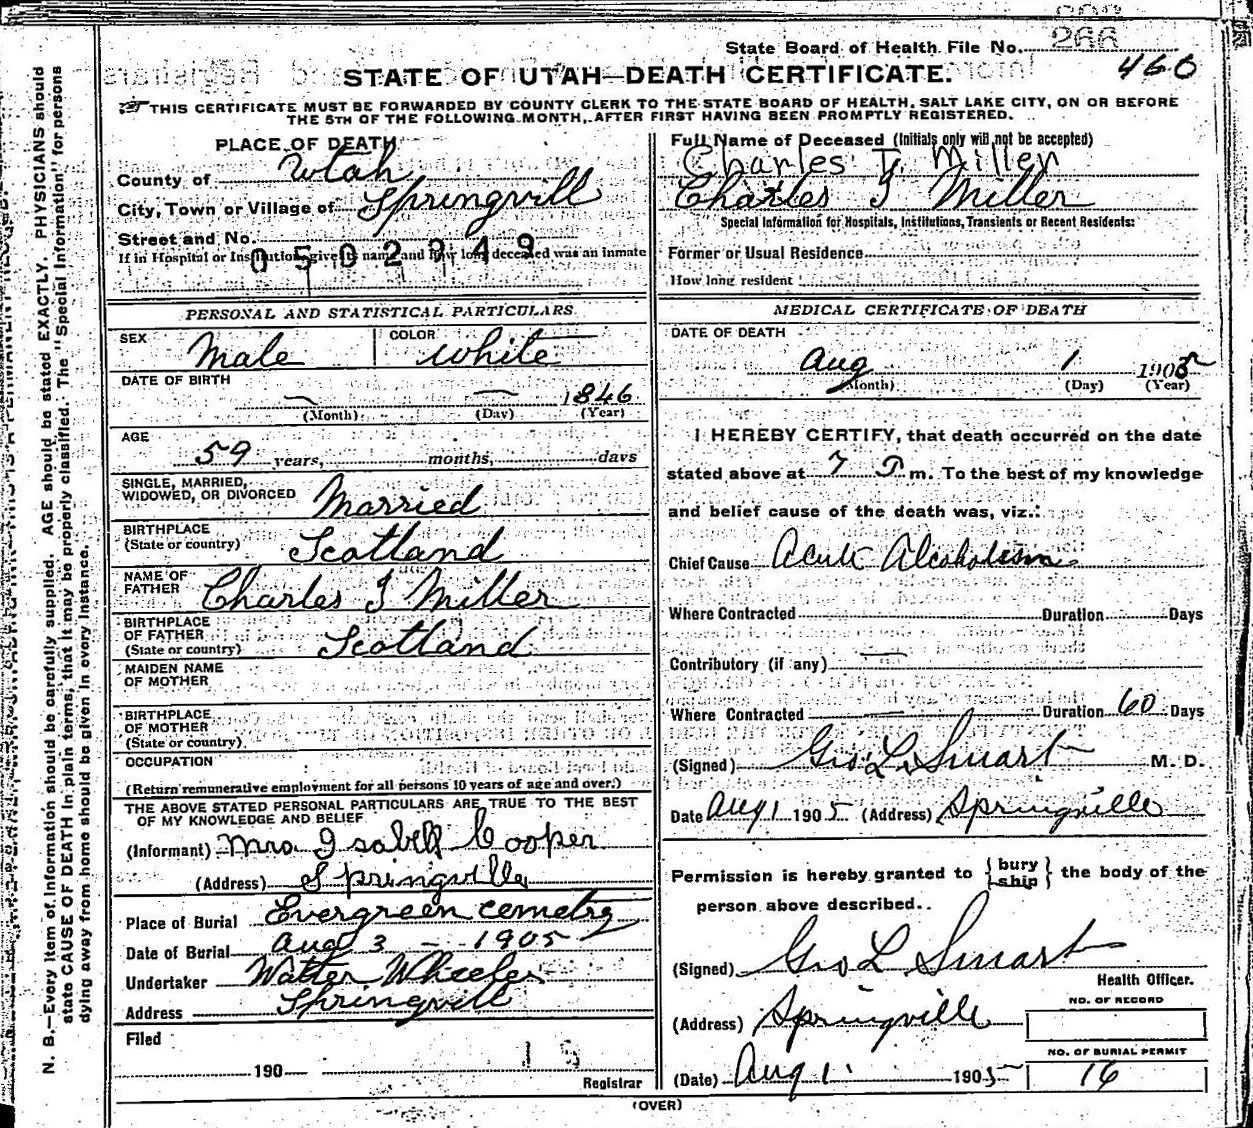 State Board of Health File No. 266
460
STATE OF UTAH—DEATH CERTIFICATE.
THIS CERTIFICATE MUST BE FORWARDED BY COUNTY CLERK TO THE STATE BOARD OF HEALTH, SALT LAKE CITY, ON OR BEFORE
THE 5TH OF THE FOLLOWING MONTH, AFTER FIRST HAVING BEEN PROMPTLY REGISTERED.
PLACE OF DEATH
County of Utah
City, Town or Village of Springvill
Street and No.
0502949
If in Hospital or Institution, give its name and how long deceased was an inmate
Full Name of Deceased (Initials only will not be accepted)
Charles T. Miller
Charles T Miller
Special Information for Hospitals, Institutions, Transients or Recent Residents:
Former or Usual Residence
How long resident
PERSONAL AND STATISTICAL PARTICULARS
SEX Male COLOR white
DATE OF BIRTH
1846
(Month) (Day) (Year)
AGE
59 years, months, days
SINGLE, MARRIED,
WIDOWED, OR DIVORCED Married
BIRTHPLACE
(State or country) Scotland
NAME OF
FATHER Charles T Miller
BIRTHPLACE
OF FATHER
(State or country) Scotland
MAIDEN NAME
OF MOTHER
BIRTHPLACE
OF MOTHER
(State or country)
OCCUPATION
(Return remunerative employment for all persons 10 years of age and over.)
THE ABOVE STATED PERSONAL PARTICULARS ARE TRUE TO THE BEST
OF MY KNOWLEDGE AND BELIEF
(Informant) Mrs Isabell Cooper
(Address) Springville
Place of Burial Evergreen cemetry
Date of Burial Aug 3 - 1905
Undertaker Walter Wheeler
Address Springvill
Filed
190
Registrar
MEDICAL CERTIFICATE OF DEATH
DATE OF DEATH
Aug 1 1905
(Month) (Day) (Year)
I HEREBY CERTIFY, that death occurred on the date
stated above at 7 P m. To the best of my knowledge
and belief cause of the death was, viz.:
Chief Cause Acute Alcoholism
Where Contracted Duration Days
Contributory (if any)
Where Contracted Duration 60 Days
(Signed) Geo L Smart M. D.
Date Aug 1 1905 (Address) Springville
Permission is hereby granted to {bury ship} the body of the
person above described..
(Signed) Geo L Smart
Health Officer.
(Address) Springville
NO. OF RECORD
NO. OF BURIAL PERMIT
(Date) Aug 1 1905 16
(OVER)
N. B.—Every item of information should be carefully supplied. AGE should be stated EXACTLY. PHYSICIANS should
state CAUSE OF DEATH in plain terms, that it may be properly classified. The "Special Information" for persons
dying away from home should be given in every instance.